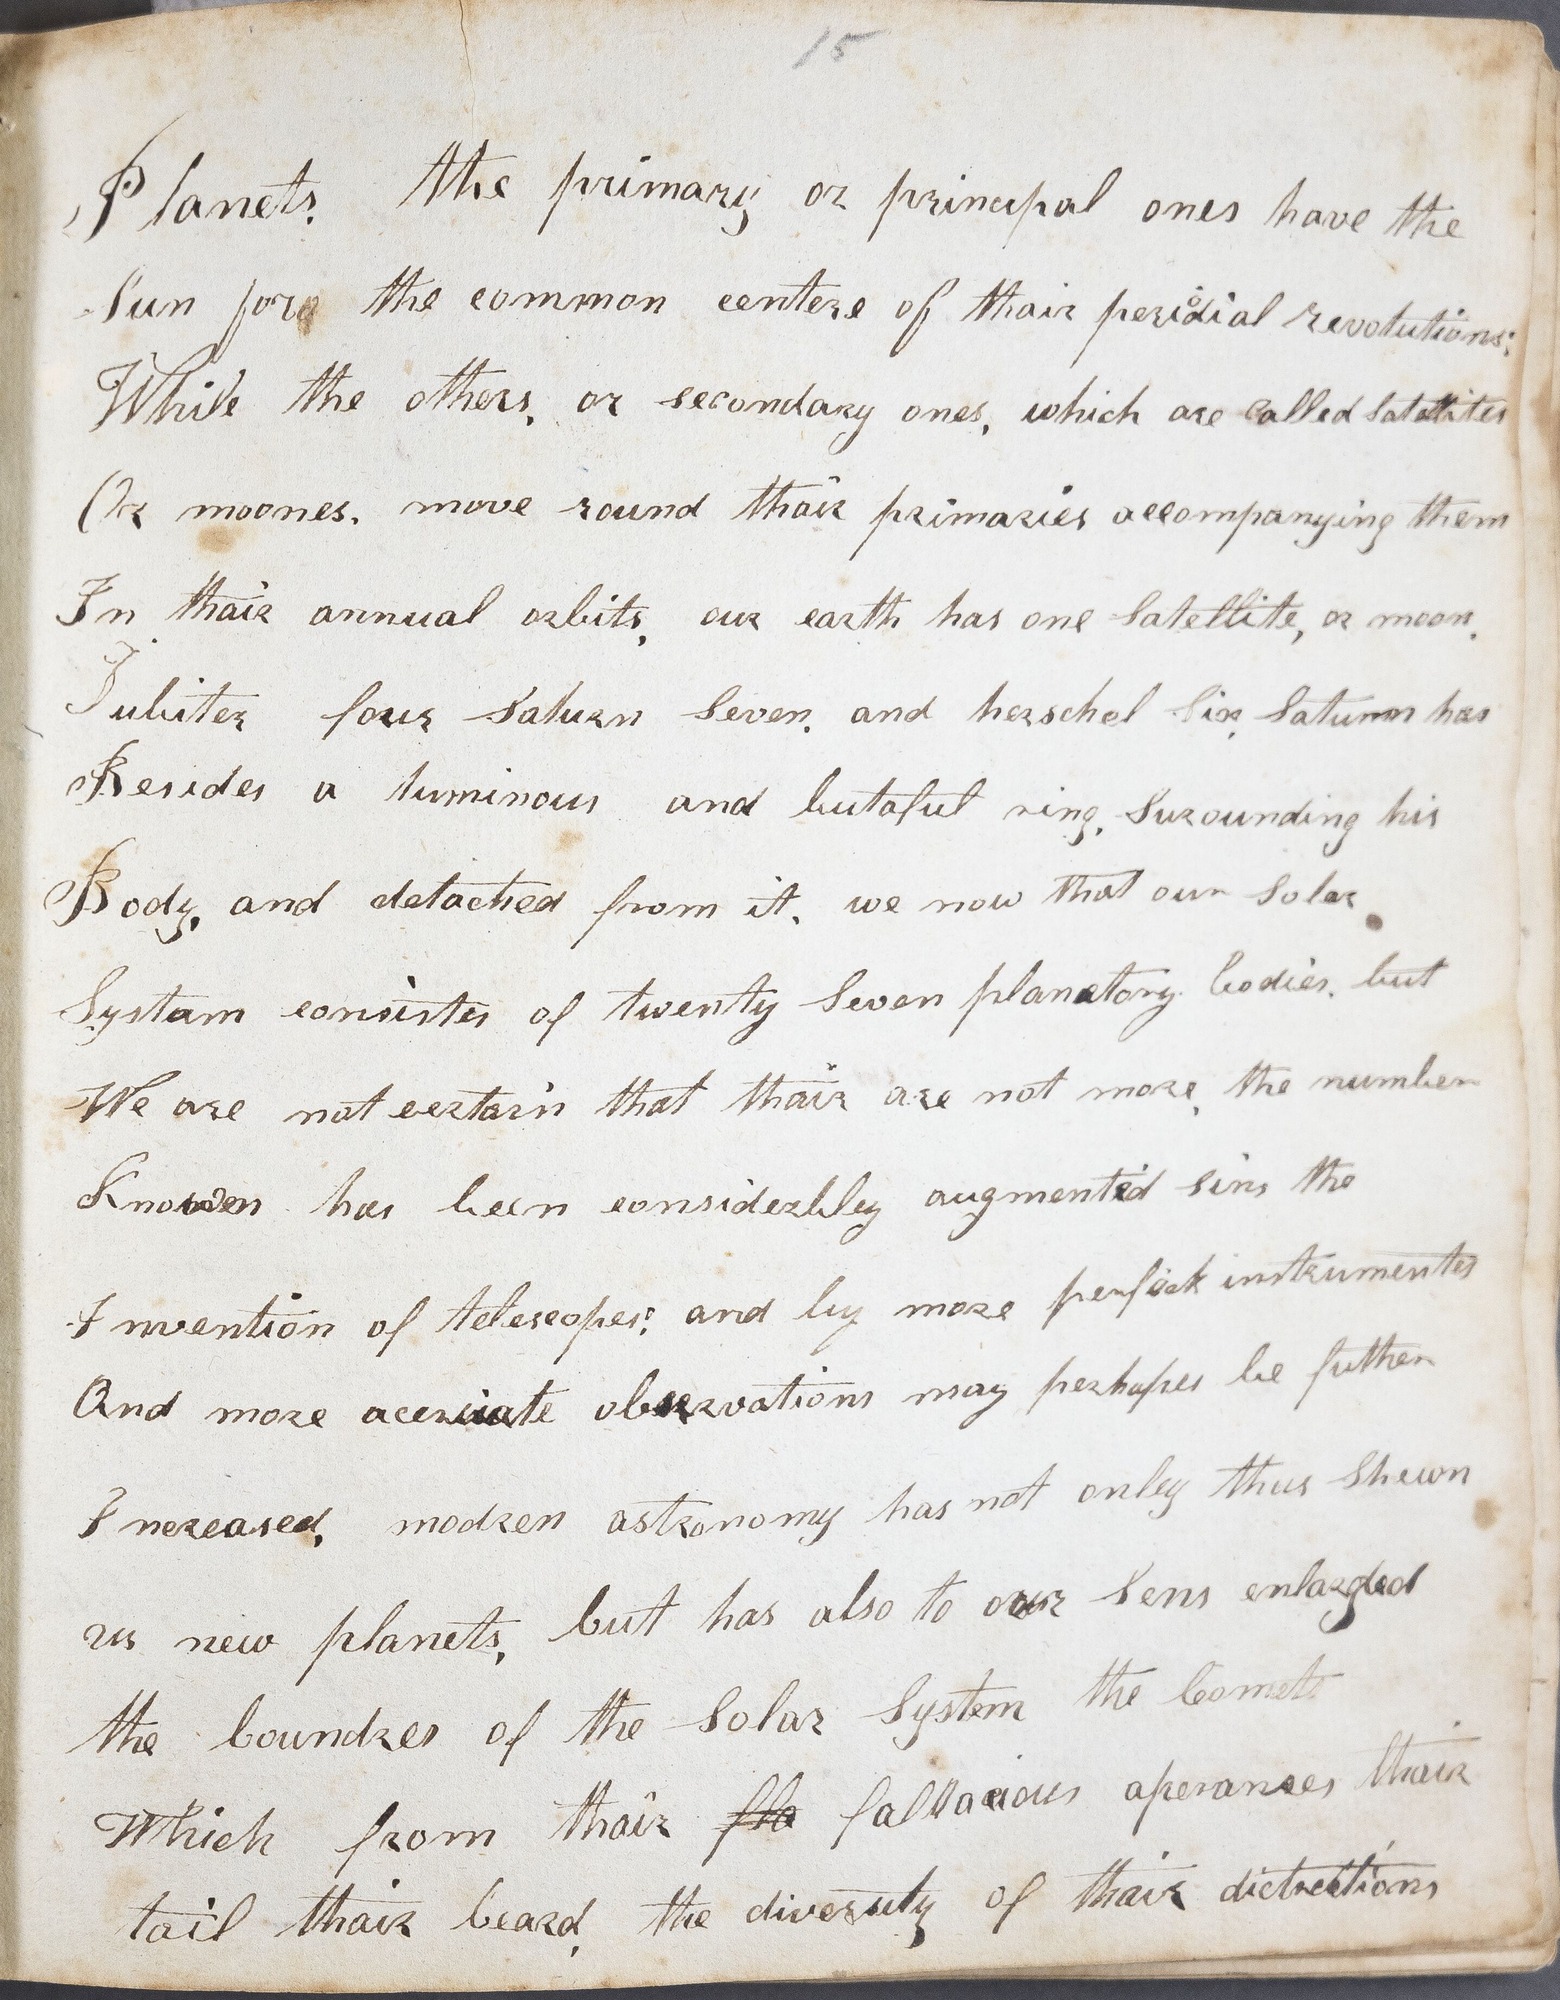 15
Planets. the primary or principal ones have the
Sun fore the common centere of thair peridial revolutions;
While the others, or secondary ones, which are called Satellites
Or moones. move round thair primaries accompanying them
In thair annual orbits, our earth has one Satellite, or moon.
Jubiter four Saturn Seven. and herschel Six, Saturnn has
Besides a luminous and butaful ring, Surounding his
Body, and detached from it. we now that our Solar
Systam consistes of twenty Seven planatory bodies. but
We are not certain that thair are not more, the number
Knowen has been considerbley augmented sins the
Invention of telescopes; and by more perfeck instrumentes
And more accruate observations may perhapes be futher
Increased, modren astronomy has not onley thus Shewn
us new planets, but has also to our Sens enlarged
the boundres of the Solar System the Comets
Which from thair fla fallacious aperances thair
tail thair beard, the diversity of thair dictrections